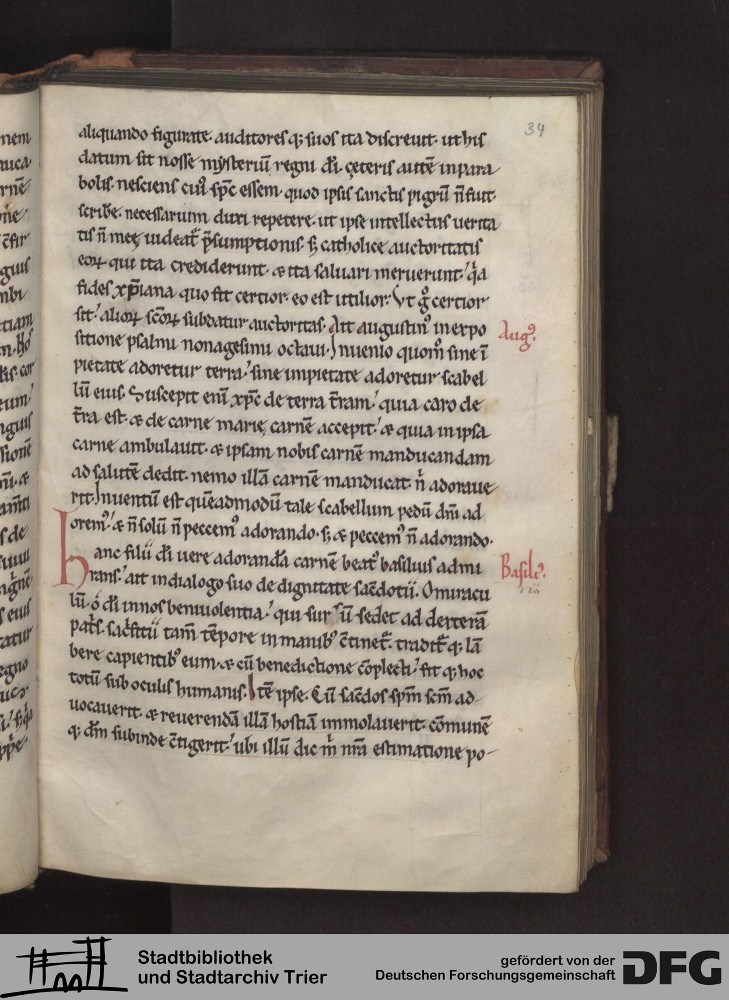 34
aliquando figurate. auditoresq; suos ita discreuit. ut his
datum sit nosse mysteriū regni dī. cęteris autē in para
bolis. nesciens cui' spc̄ essem. quod ipsis sanctis pigrū n̄ fuit
scribe. necessarium duxi repetere. ut ipse intellectus uerita
tis n̄ meę uideat̄ p̄sumptionis. s; catholicę auctoritatis
eoꝝ qui ita crediderunt. & ita saluari meruerunt. q̇a
fides xp̄iana quo fit certior. eo est utilior. Vt g̊ certior
sit. alioꝝ sc̄oꝝ subdatur auctoritas. Ait augustin' in expo
Aug'.
sitione psalmi nonagesimi octaui. Inuenio quom̊ sine ī
pietate adoretur terra. sine impietate adoretur scabel
lū eius. Suscepit enī xp̄c de terra t̄ram. quia caro de
t̄ra est. & de carne marię carnē accepit. & quia in ipsa
carne ambulauit. & ipsam nobis carnē manducandam
ad salutē dedit. nemo illā carnē manducat. n̄ adoraue
rit. Inuentū est quēadmodū tale scabellum pedū dn̄i ad
orem'. & n̄ solū n̄ peccem' adorando. s; & peccem' n̄ adorando.
hanc filii dī uere adorandā carnē beat' basilius admi
Basili'.
rans. ait in dialogo suo de dignitate sac̄dotii. O miracu
lū. ó dī in nos beniuolentia. qui sursū sedet ad dexterā
pat̄s. sac̄ficii tam̄ tēpore in manib' c̄tinet̄. tradit̄q; lā
bere capientib' eum. & cū benedictione cōplecti. fitq; hoc
totū sub oculis humanis. Itē ipse. Cū sac̄dos sp̄m sc̄m ad
uocauerit. & reuerendā illā hostiā immolauerit. cōmunē
q; dn̄m subinde c̄tigerit. ubi illū dic m̄ nr̄a estimatione po-
Stadtbibliothek
und Stadtarchiv Trier
gefördert von der
Deutschen Forschungsgemeinschaft
DFG